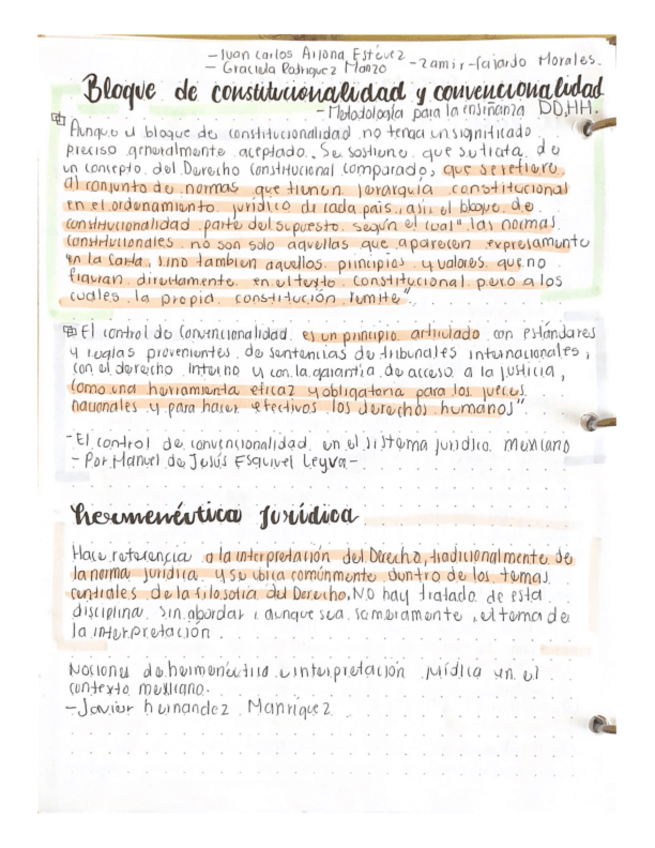 - Juan Carlos Arjona Estévez
- Graciela Rodriguez Manzo - Zamir Fajardo Morales.
Bloque de constitucionalidad y convencionalidad
- Metodología para la enseñanza DD.HH.
Aunque el bloque de constitucionalidad no tenga un significado
preciso generalmente aceptado. Se sostiene que se trata de
un concepto del Derecho Constitucional comparado, que se refiere
al conjunto de normas que tienen jerarquía constitucional
en el ordenamiento jurídico de cada país, así el bloque de
constitucionalidad parte del supuesto según el cual "las normas
constitucionales no son solo aquellas que aparecen expresamente
en la Carta, sino tambien aquellos principios y valores que no
figuran directamente en el texto constitucional pero a los
cuales la propia constitución remite".
El control de Convencionalidad es un principio articulado con estándares
y reglas provenientes de sentencias de tribunales internacionales,
con el derecho interno y con la garantía de acceso a la justicia,
como una herramienta eficaz y obligatoria para los jueces
nacionales y para hacer efectivos los derechos humanos"
- El control de convencionalidad en el sistema jurídico mexicano
- Por Manuel de Jesús Esquivel Leyva -
hermenéutica Jurídica
Hace referencia a la interpretación del Derecho, tradicionalmente de
la norma jurídica y se ubica comúnmente dentro de los temas
centrales de la filosofía del Derecho. NO hay tratado de esta
disciplina sin abordar, aunque sea someramente, el tema de
la interpretación.
Nociones de hermenéutica e interpretación jurídica en el
contexto mexicano.
- Javier hernandez Manriquez